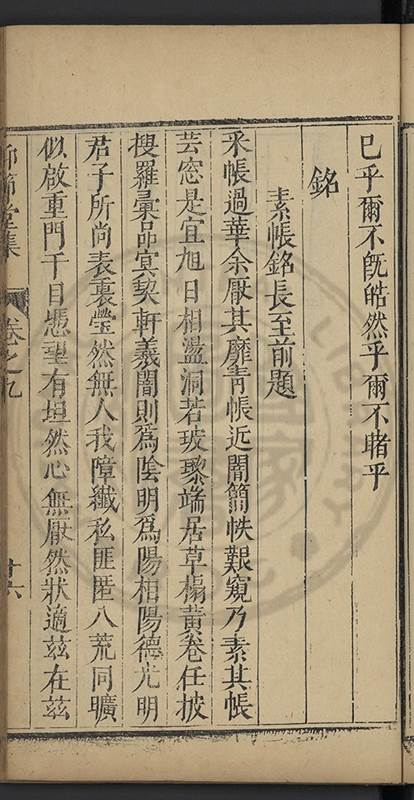 已乎爾不旣皓然乎爾不睹乎
銘
素帳銘長至前題
采帳過華余厭其靡靑帳近闇簡帙艱窺乃素其帳
芸窓是宜旭日相盪洞若玻瓈端居草榻黃卷任披
搜羅彙品冥契軒羲闇則爲陰明爲陽相陽德尤明
君子所尚表裏瑩然無人我障纖私匪匿八荒同曠
似啟重門千目憑望有坦然心無厭然狀適茲在茲
節堂集
卷之九
廿六